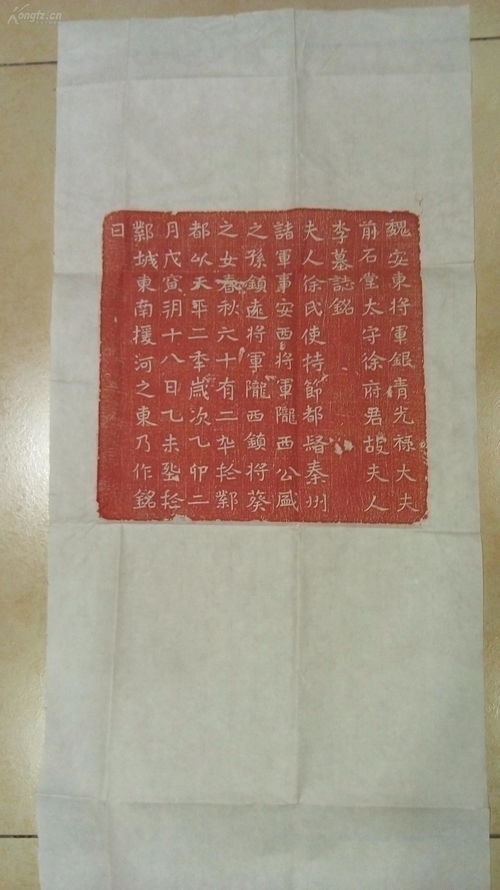 魏安東將軍銀青光祿大夫
前石堂太守徐府君故夫人
李墓誌銘
夫人徐氏使持節都督秦州
諸軍事安西將軍隴西公盛
之孫鎮遠將軍隴西鎮將葵
之女春秋六十有二卒於鄴
都以天平二年歲次乙卯二
月戊寅朔十八日乙未塟於
鄴城東南援河之東乃作銘
曰
Kongfz.cn